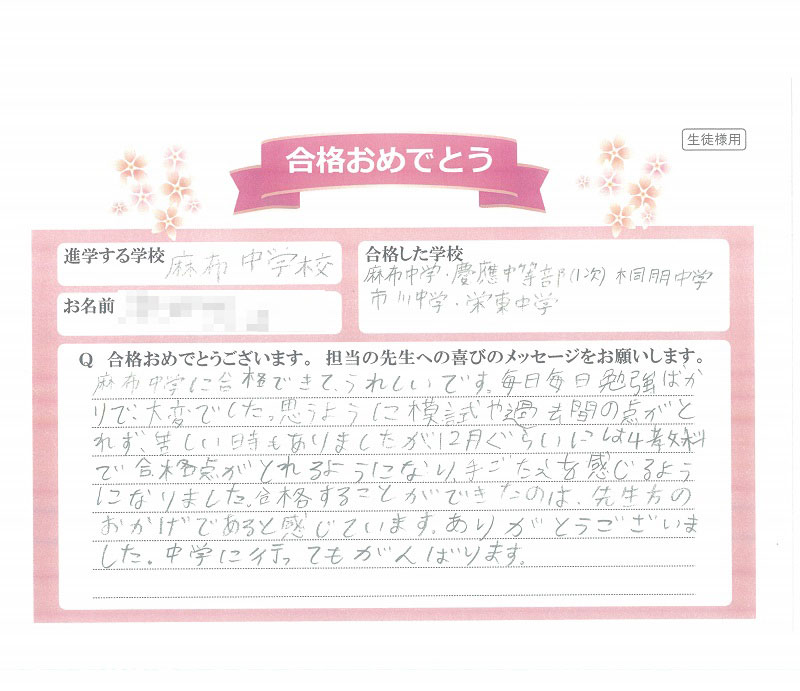 生徒様用
合格おめでとう
進学する学校 麻布中学校
合格した学校
麻布中学・慶應中等部(1次) 桐朋中学
市川中学・栄東中学
お名前
Q 合格おめでとうございます。 担当の先生への喜びのメッセージをお願いします。
麻布中学に合格できて、うれしいです。毎日毎日勉強ばか
りで、大変でした。思うように模試や過去問の点がと
れず、苦しい時もありましたが、12月ぐらいには4教科
で合格点がとれるようになり、手ごたえを感じるよう
になりました。合格することができたのは、先生方の
おかげであると感じています。ありがとうございま
した。中学に行ってもがんばります。